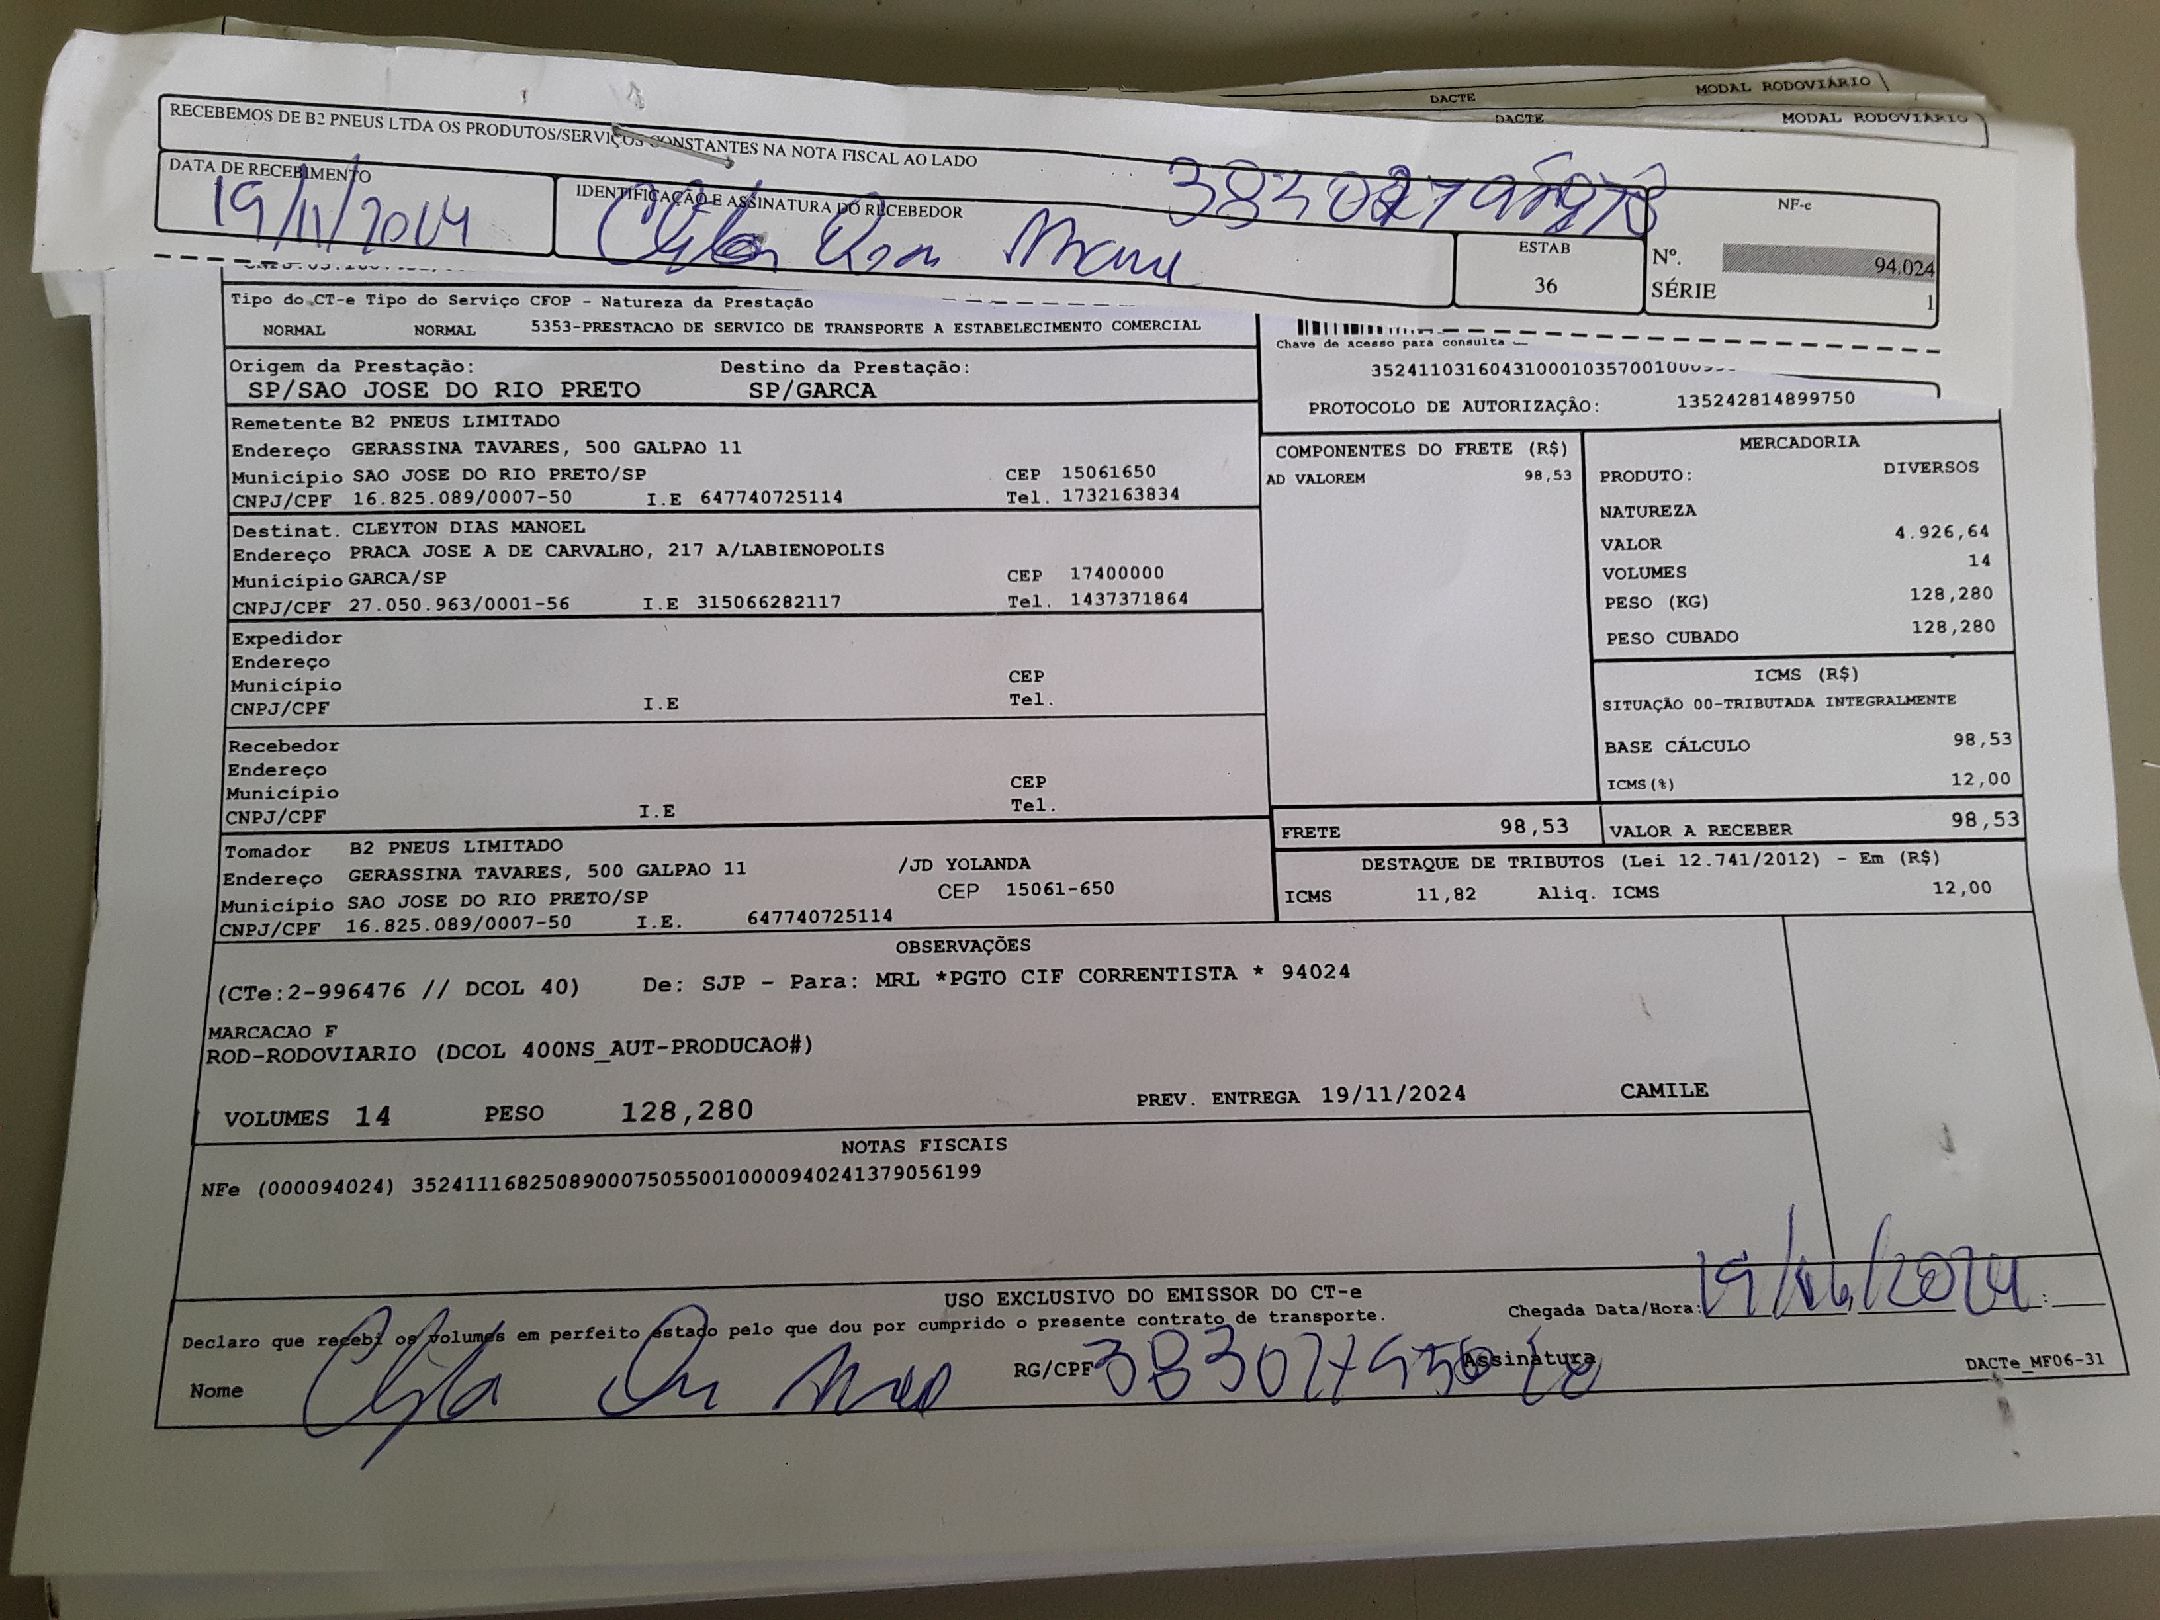 DACTE MODAL RODOVIÁRIO
DACTE MODAL RODOVIÁRIO
RECEBEMOS DE B2 PNEUS LTDA OS PRODUTOS/SERVIÇOS CONSTANTES NA NOTA FISCAL AO LADO
DATA DE RECEBIMENTO
19/11/2024
IDENTIFICAÇÃO E ASSINATURA DO RECEBEDOR
ESTAB
36
NF-e
Nº. 94.024
SÉRIE 1
Tipo do CT-e Tipo do Serviço CFOP - Natureza da Prestação
NORMAL NORMAL 5353-PRESTACAO DE SERVICO DE TRANSPORTE A ESTABELECIMENTO COMERCIAL
Chave de acesso para consulta
Origem da Prestação: Destino da Prestação:
SP/SAO JOSE DO RIO PRETO SP/GARCA
PROTOCOLO DE AUTORIZAÇÃO: 135242814899750
Remetente B2 PNEUS LIMITADO
Endereço GERASSINA TAVARES, 500 GALPAO 11
Município SAO JOSE DO RIO PRETO/SP CEP 15061650
CNPJ/CPF 16.825.089/0007-50 I.E 647740725114 Tel. 1732163834
Destinat. CLEYTON DIAS MANOEL
Endereço PRACA JOSE A DE CARVALHO, 217 A/LABIENOPOLIS
Município GARCA/SP CEP 17400000
CNPJ/CPF 27.050.963/0001-56 I.E 315066282117 Tel. 1437371864
Expedidor
Endereço
Município CEP
CNPJ/CPF I.E Tel.
Recebedor
Endereço
Município CEP
CNPJ/CPF I.E Tel.
Tomador B2 PNEUS LIMITADO
Endereço GERASSINA TAVARES, 500 GALPAO 11 /JD YOLANDA
Município SAO JOSE DO RIO PRETO/SP CEP 15061-650
CNPJ/CPF 16.825.089/0007-50 I.E. 647740725114
COMPONENTES DO FRETE (R$)
AD VALOREM 98,53
MERCADORIA
PRODUTO: DIVERSOS
NATUREZA
VALOR 4.926,64
VOLUMES 14
PESO (KG) 128,280
PESO CUBADO 128,280
ICMS (R$)
SITUAÇÃO 00-TRIBUTADA INTEGRALMENTE
BASE CÁLCULO 98,53
ICMS(%) 12,00
FRETE 98,53 VALOR A RECEBER 98,53
DESTAQUE DE TRIBUTOS (Lei 12.741/2012) - Em (R$)
ICMS 11,82 Aliq. ICMS 12,00
OBSERVAÇÕES
(CTe:2-996476 // DCOL 40) De: SJP - Para: MRL *PGTO CIF CORRENTISTA * 94024
MARCACAO F
ROD-RODOVIARIO (DCOL 400NS_AUT-PRODUCAO#)
VOLUMES 14 PESO 128,280 PREV. ENTREGA 19/11/2024 CAMILE
NOTAS FISCAIS
NFe (000094024) 35241116825089000750550010000940241379056199
USO EXCLUSIVO DO EMISSOR DO CT-e
Declaro que recebi os volumes em perfeito estado pelo que dou por cumprido o presente contrato de transporte.
Chegada Data/Hora:
Nome RG/CPF Assinatura
DACTe_MF06-31